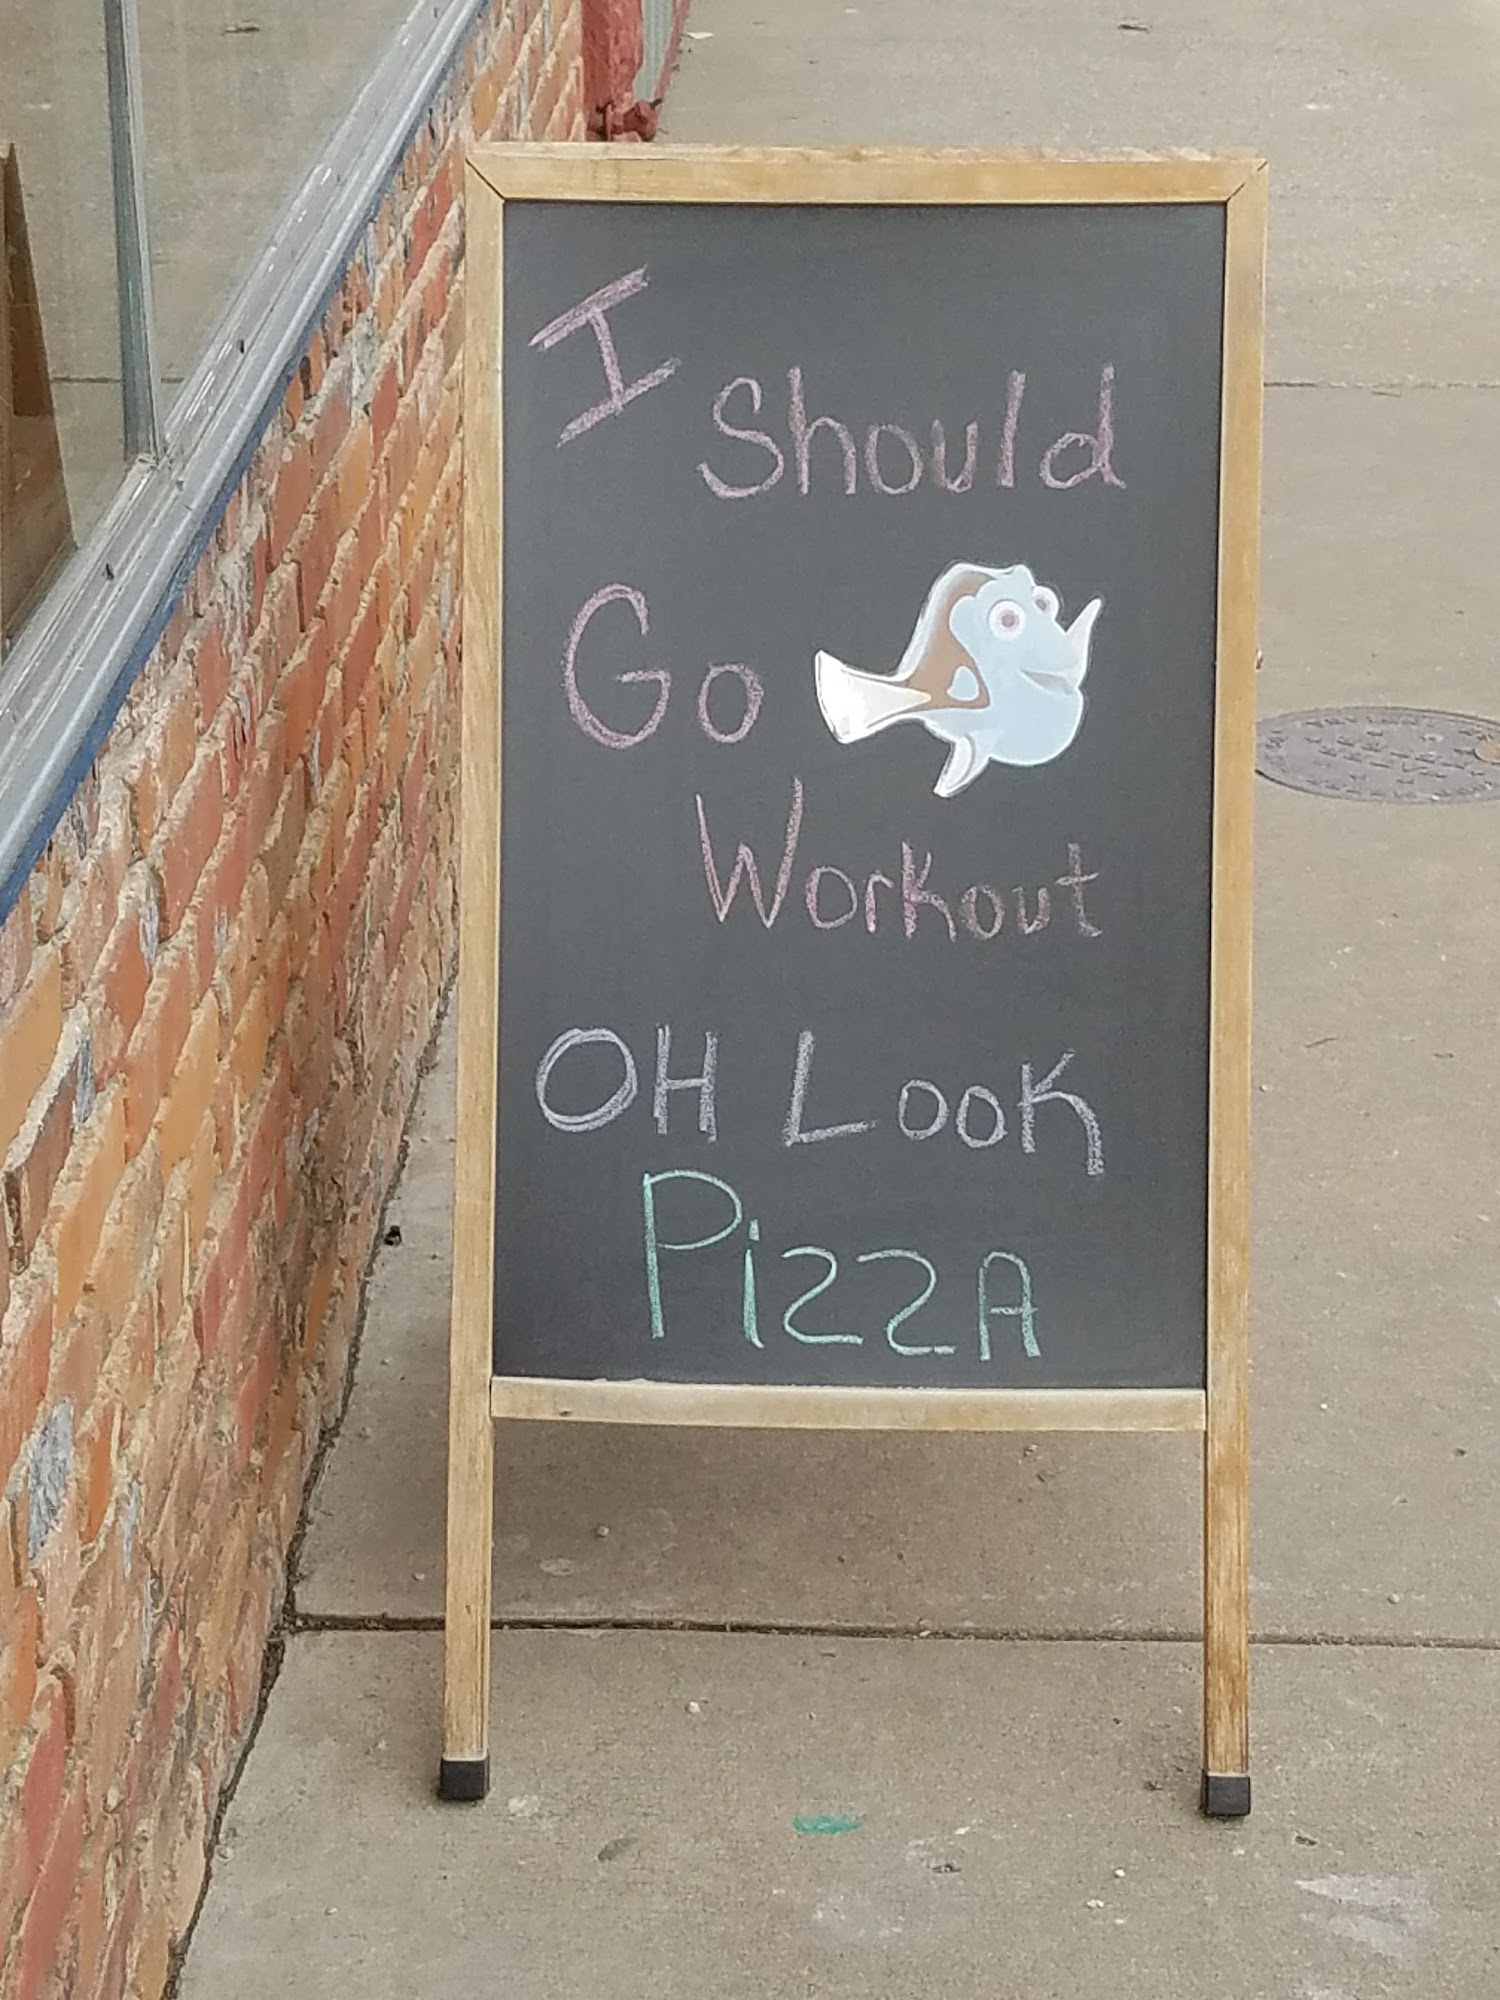 I
Should
Go
Workout
OH Look
Pizza